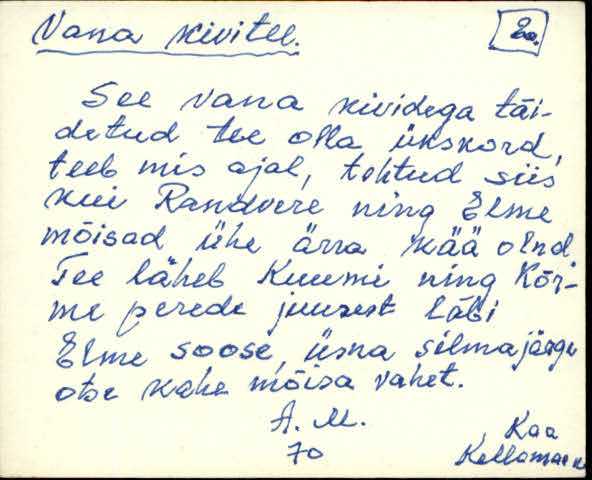 Vana kivitee.
Ea.
See vana kividega täi-
detud tee olla ükskord,
teeb mis ajal, tehtud siis
kui Randvere ning Elme
mõisad ühe ärra kää olnd
Tee läheb Kuumi ning Kõr-
me perede juurest läbi
Elme soose, üsna silmajärge
otse kahe mõisa vahet.
A. M.
70
Kaa